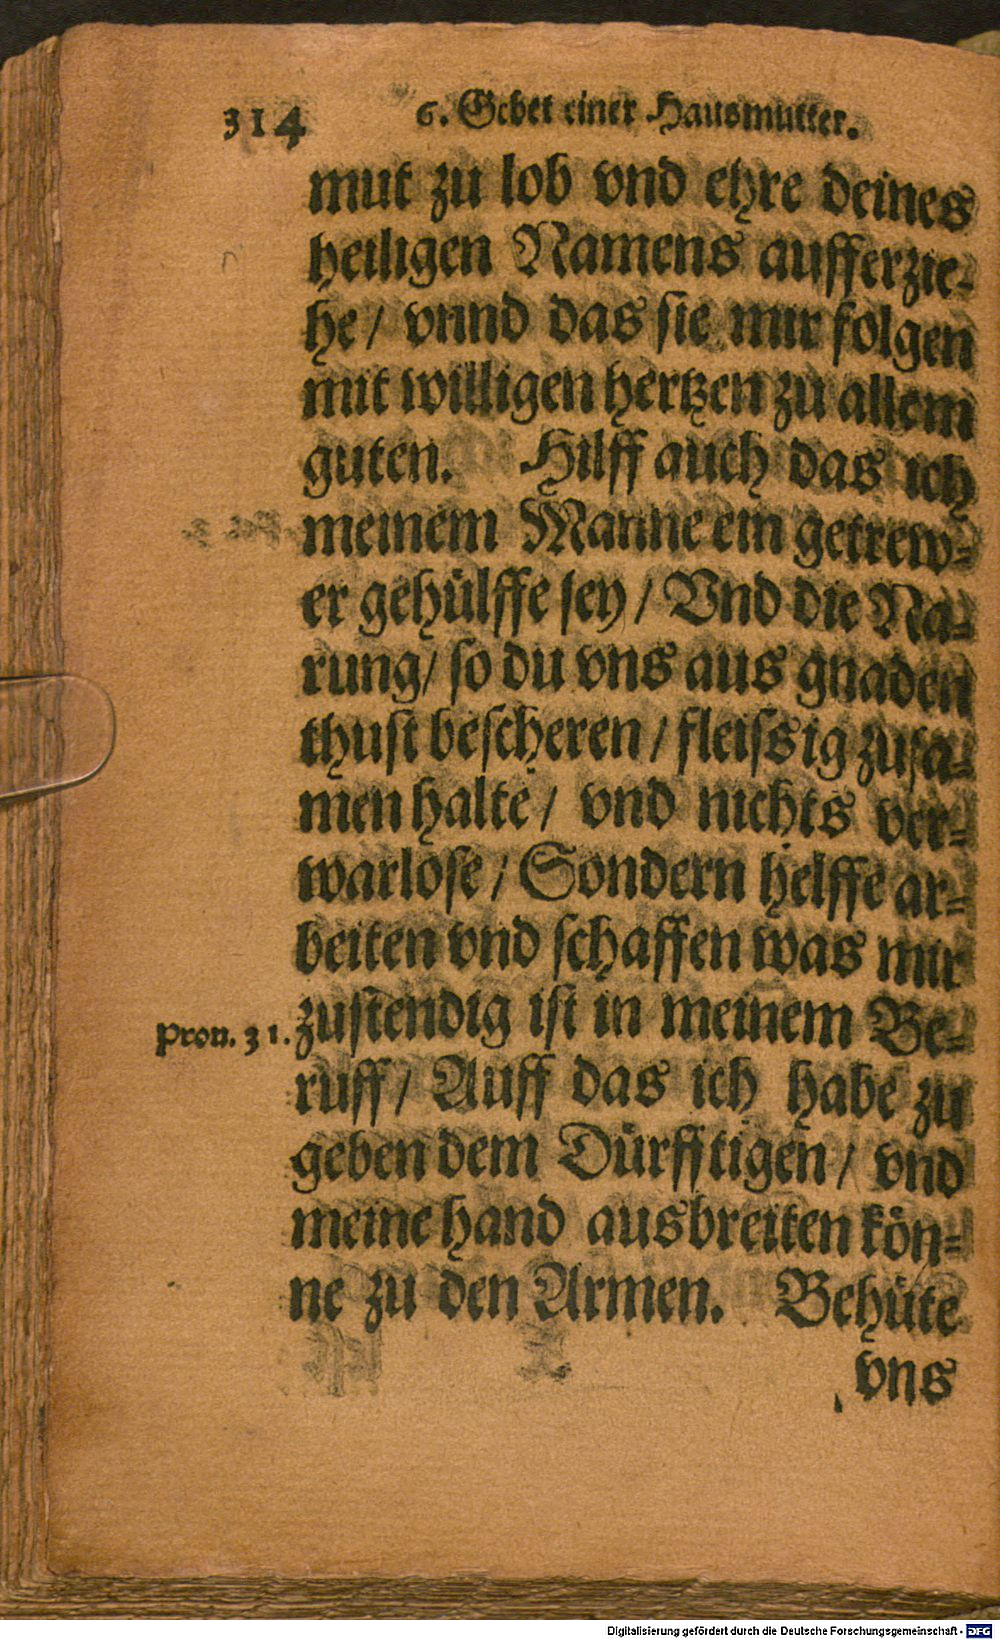 314 6. Gebet einer Hausmutter.
mut zu lob vnd ehre deines
heiligen Namens aufferzie-
he / vnnd das sie mir folgen
mit willigen hertzen zu allem
guten. Hilff auch das ich
meinem Manne ein getrew-
er gehülffe sey / Vnd die Na-
rung / so du vns aus gnaden
thust bescheren / fleissig zusa-
men halte / vnd nichts ver-
warlose / Sondern helffe ar-
beiten vnd schaffen was mir
Prou. 31. zustendig ist in meinem Be-
ruff / Auff das ich habe zu
geben dem Dürfftigen / vnd
meine hand ausbreiten kön-
ne zu den Armen. Behüte
vns
Digitalisierung gefördert durch die Deutsche Forschungsgemeinschaft - DFG